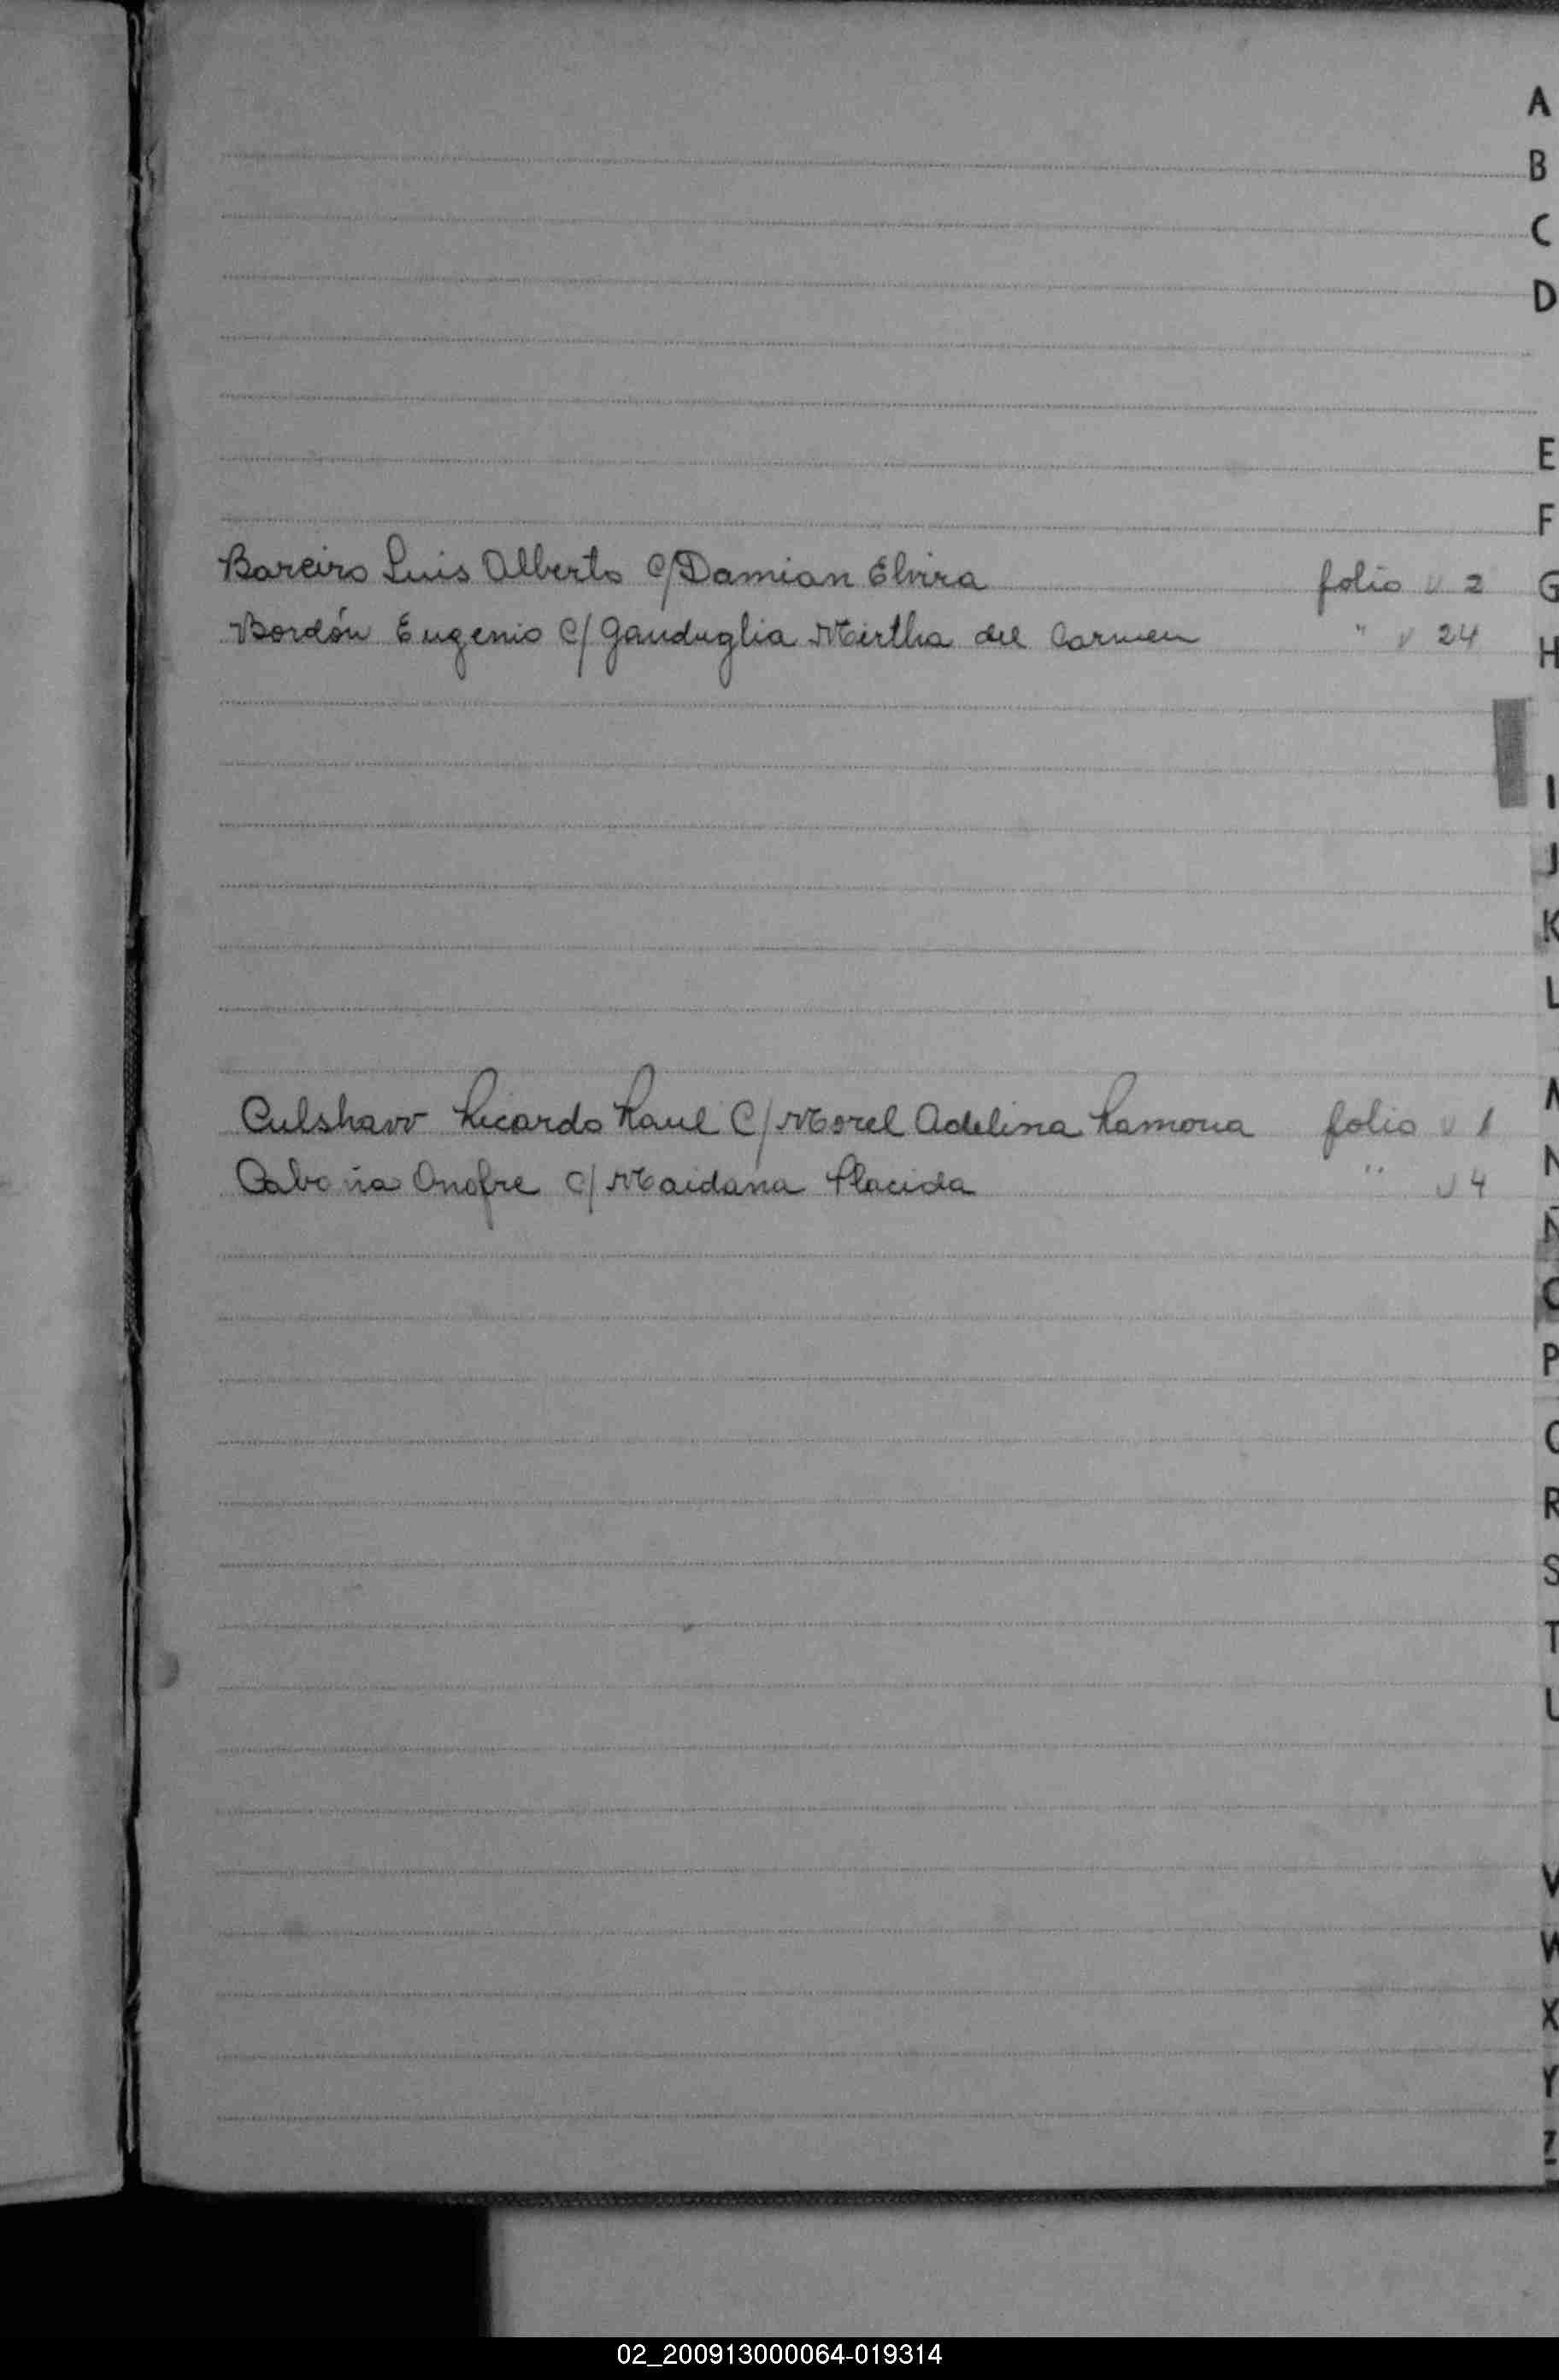 A
B
C
D
E
F
Bareiro Luis Alberto C/Damian Elvira folio v 2
G
Bordón Eugenio C/ Gauduglia Mirtha del Carmen " v 24
H
I
J
K
L
Culshaw Ricardo Raul C/ Morel Adelina Ramona folio v 1
M
N
Onofre C/ Maidana Placida " v 4
Ñ
O
P
Q
R
S
T
U
V
W
X
Y
Z
02_200913000064-019314